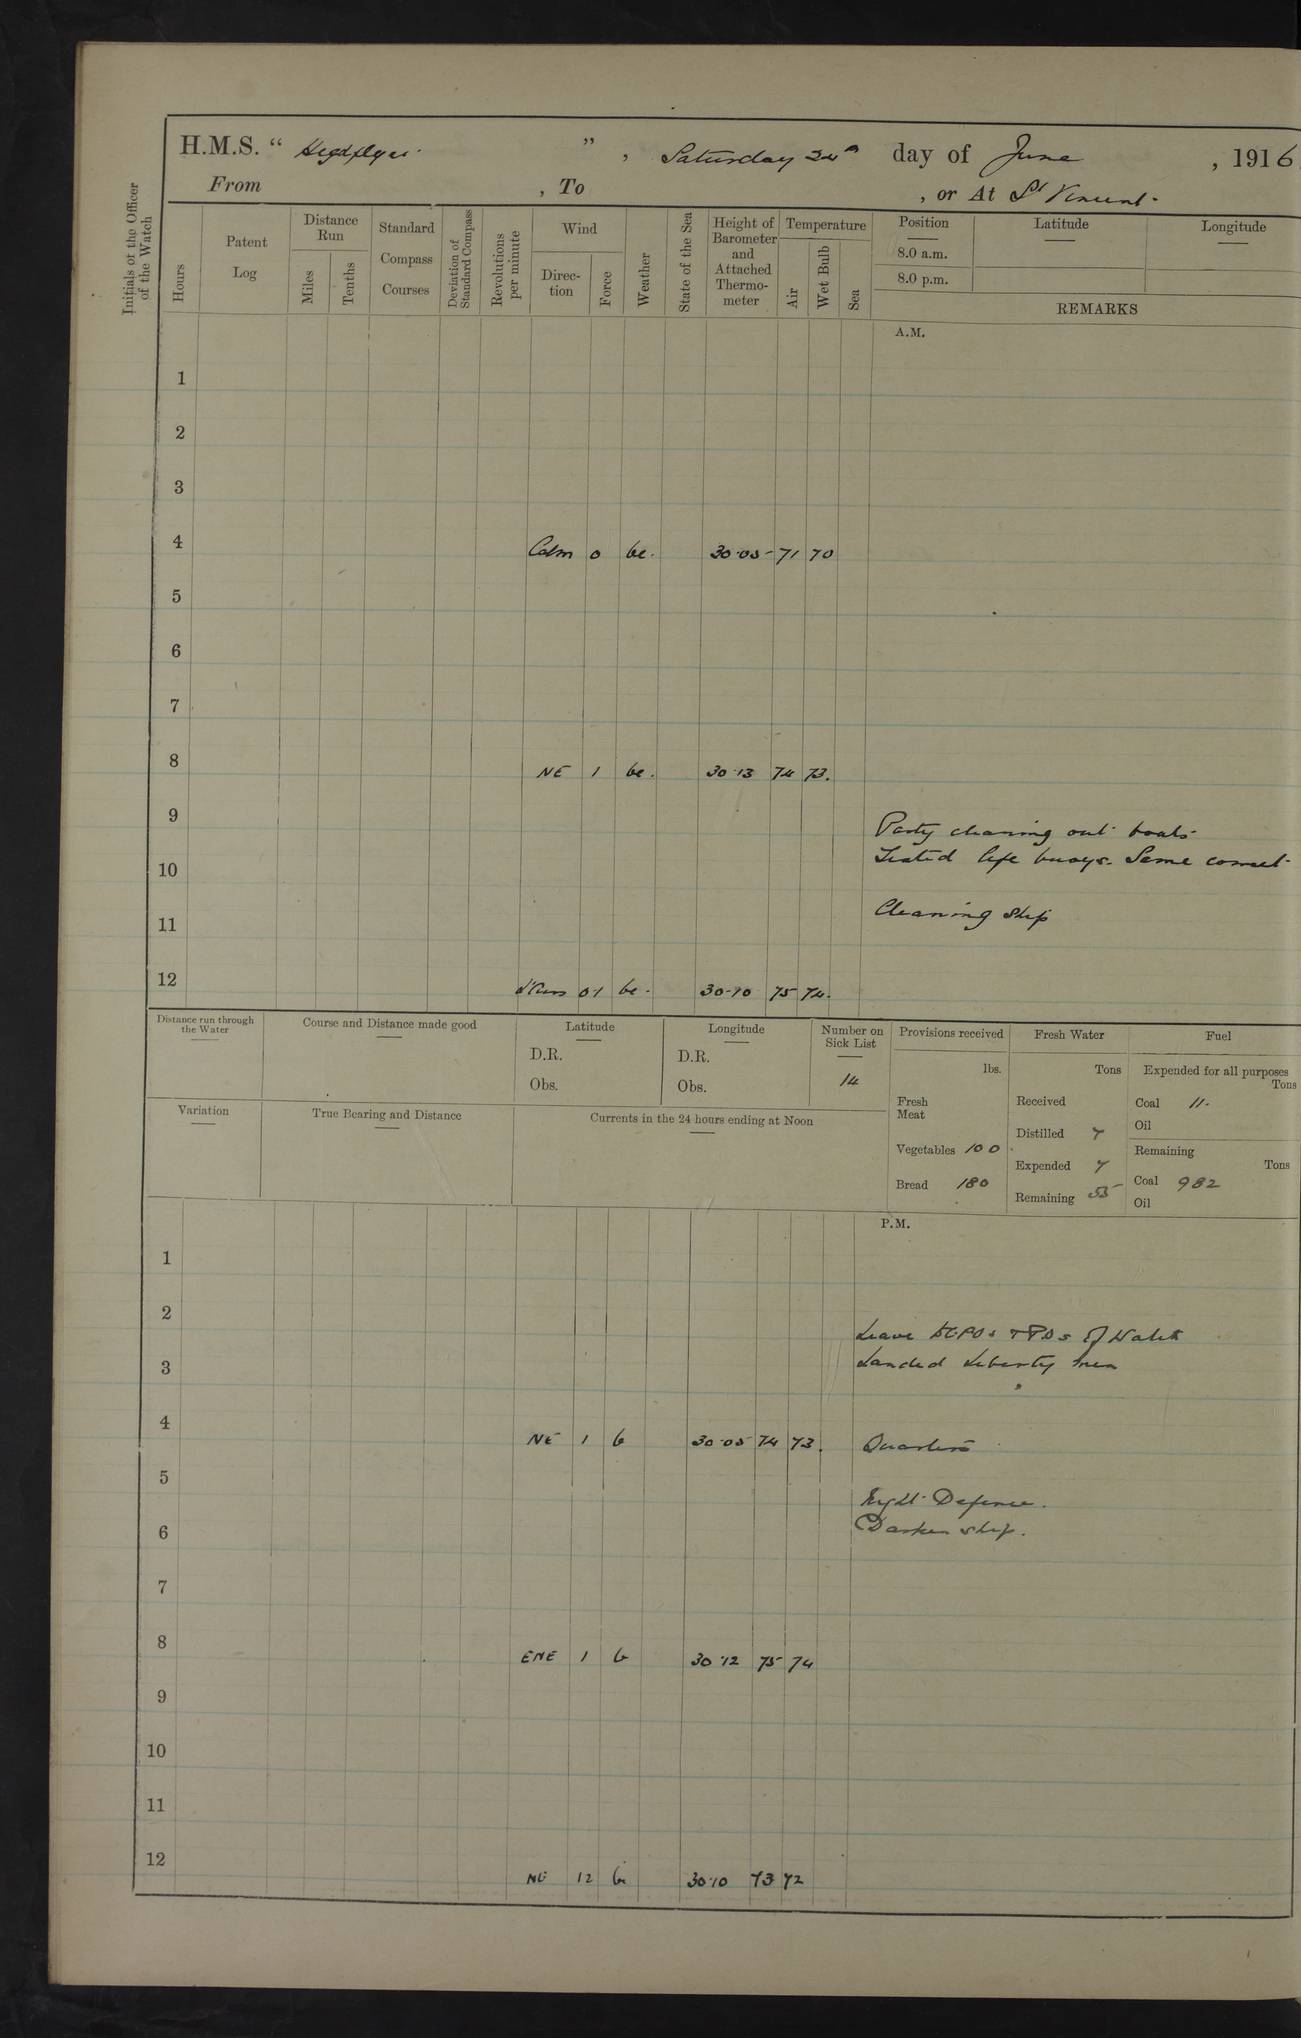 H.M.S. “ Highflyer ” , Saturday 24th day of June , 1916
From , To , or At St Vincent.
Initials of the Officer of the Watch
Hours
Patent Log
Distance Run
Miles
Tenths
Standard Compass Courses
Deviation of Standard Compass
Revolutions per minute
Wind
Direc-tion
Force
Weather
State of the Sea
Height of Barometer and Attached Thermo-meter
Temperature
Air
Wet Bulb
Sea
Position
8.0 a.m.
8.0 p.m.
Latitude
Longitude
REMARKS
A.M.
1
2
3
4 Calm 0 bc. 30.05 71 70
5
6
7
8 NE 1 bc. 30.13 74 73.
9
Party cleaning out boats
Tested life buoys. Same correct
10
Cleaning Ship
11
12 0.1 bc. 30.10 75 74.
Distance run through the Water
Course and Distance made good
Latitude
D.R.
Obs.
Longitude
D.R.
Obs.
Number on Sick List
14
Provisions received
lbs.
Fresh Meat
Vegetables 100
Bread 180
Fresh Water
Tons
Received
Distilled 7
Expended 7
Remaining 55
Fuel
Expended for all purposes
Tons
Coal 11.
Oil
Remaining
Tons
Coal 982
Oil
Variation
True Bearing and Distance
Currents in the 24 hours ending at Noon
P.M.
1
2
Leave to CPOs & POs of Watch
3 Landed Liberty men
4 NE 1 b 30.05 74 73. Quarters
5
Night Defence.
6 Darken ship.
7
8 ENE 1 b 30.12 75 74
9
10
11
12 NE 12 bc 30.10 73 72